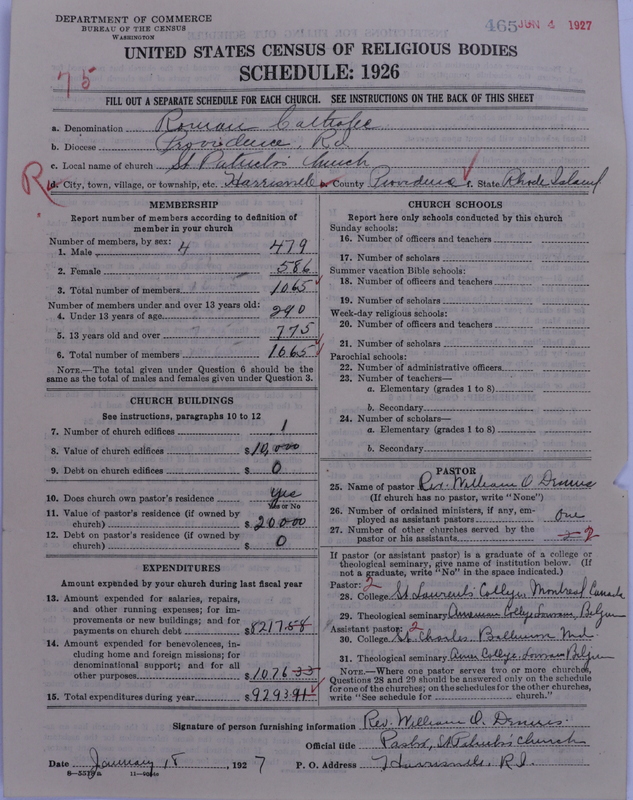 DEPARTMENT OF COMMERCE
BUREAU OF THE CENSUS
WASHINGTON
465 JUN 4 1927
UNITED STATES CENSUS OF RELIGIOUS BODIES
SCHEDULE: 1926
75
FILL OUT A SEPARATE SCHEDULE FOR EACH CHURCH. SEE INSTRUCTIONS ON THE BACK OF THIS SHEET
a. Denomination Roman Catholic
b. Diocese Providence, R.I.
c. Local name of church St Patrick's Church
d. City, town, village, or township, etc. Harrisville e. County Providence f. State Rhode Island
MEMBERSHIP
Report number of members according to definition of
member in your church
Number of members, by sex:
1. Male 4 479
2. Female 586
3. Total number of members 1065
Number of members under and over 13 years old:
4. Under 13 years of age 290
5. 13 years old and over 775
6. Total number of members 1065
NOTE.—The total given under Question 6 should be
same as the total of males and females given under Question 3.
CHURCH BUILDINGS
See instructions, paragraphs 10 to 12
7. Number of church edifices 1
8. Value of church edifices $10,000
9. Debt on church edifices $ 0
10. Does church own pastor's residence yes
Yes or No
11. Value of pastor's residence (if owned by
church) $20000
12. Debt on pastor's residence (if owned by
church) $ 0
EXPENDITURES
Amount expended by your church during last fiscal year
13. Amount expended for salaries, repairs,
and other running expenses; for im-
provements or new buildings; and for
payments on church debt $8217.58
14. Amount expended for benevolences, in-
cluding home and foreign missions; for
denominational support; and for all
other purposes $1076 33
15. Total expenditures during year $9293 91
CHURCH SCHOOLS
Report here only schools conducted by this church
Sunday schools:
16. Number of officers and teachers
17. Number of scholars
Summer vacation Bible schools:
18. Number of officers and teachers
19. Number of scholars
Week-day religious schools:
20. Number of officers and teachers
21. Number of scholars
Parochial schools:
22. Number of administrative officers
23. Number of teachers—
a. Elementary (grades 1 to 8)
b. Secondary
24. Number of scholars—
a. Elementary (grades 1 to 8)
b. Secondary
PASTOR
25. Name of pastor Rev. William O.
(If church has no pastor, write "None")
26. Number of ordained ministers, if any, em-
ployed as assistant pastors one
27. Number of other churches served by the
pastor or his assistants 2
If pastor (or assistant pastor) is a graduate of a college or
theological seminary, give name of institution below. (If
not a graduate, write "No" in the space indicated.)
Pastor: 2
28. College St Laurents College, Montreal Canada
29. Theological seminary American College Louvain, Belgium
Assistant pastor: 2
30. College St Charles Baltimore Md.
31. Theological seminary Amer College, Louvain Belgium
NOTE.—Where one pastor serves two or more churches,
Questions 28 and 29 should be answered only on the schedule
for one of the churches; on the schedules for the other churches,
write "See schedule for church."
Signature of person furnishing information Rev. William O.
Official title Pastor, St Patrick's Church
Date January 18, 1927 P. O. Address Harrisville, R.I.